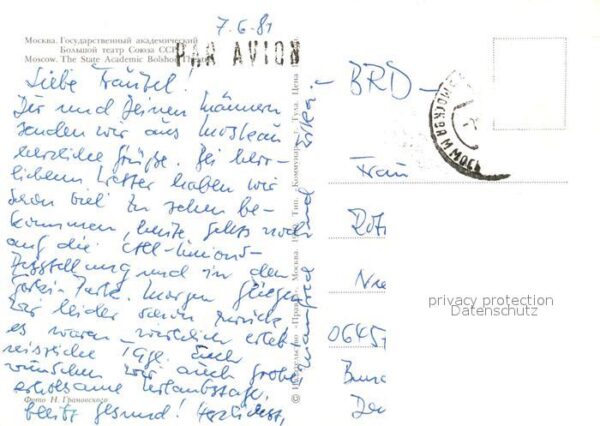 7.6.81
Москва. Государственный академический
Большой театр Союза ССР
Moscow. The State Academic Bolshoi Theatre
PAR AVION
Liebe Traudel!
Dir und Deinen Männern
senden wir aus Moskau
herzliche Grüße. Bei herr-
lichem Wetter haben wir
schon viel zu sehen be-
kommen, heute geht's noch
auf die All-Unions-
Ausstellung und in den
Gorki-Park. Morgen fliegen
wir leider schon zurück
es waren wirklich erleb-
nisreiche Tage. Euch
wünschen wir auch große
erholsame Urlaubstage,
bleibt gesund! Herzlichst,
Фото Н. Грановского
© Издательство «Правда». Москва
Тип. «Коммунар», г. Тула. Цена
BRD
МОСКВА
Frau
06451
privacy protection
Datenschutz